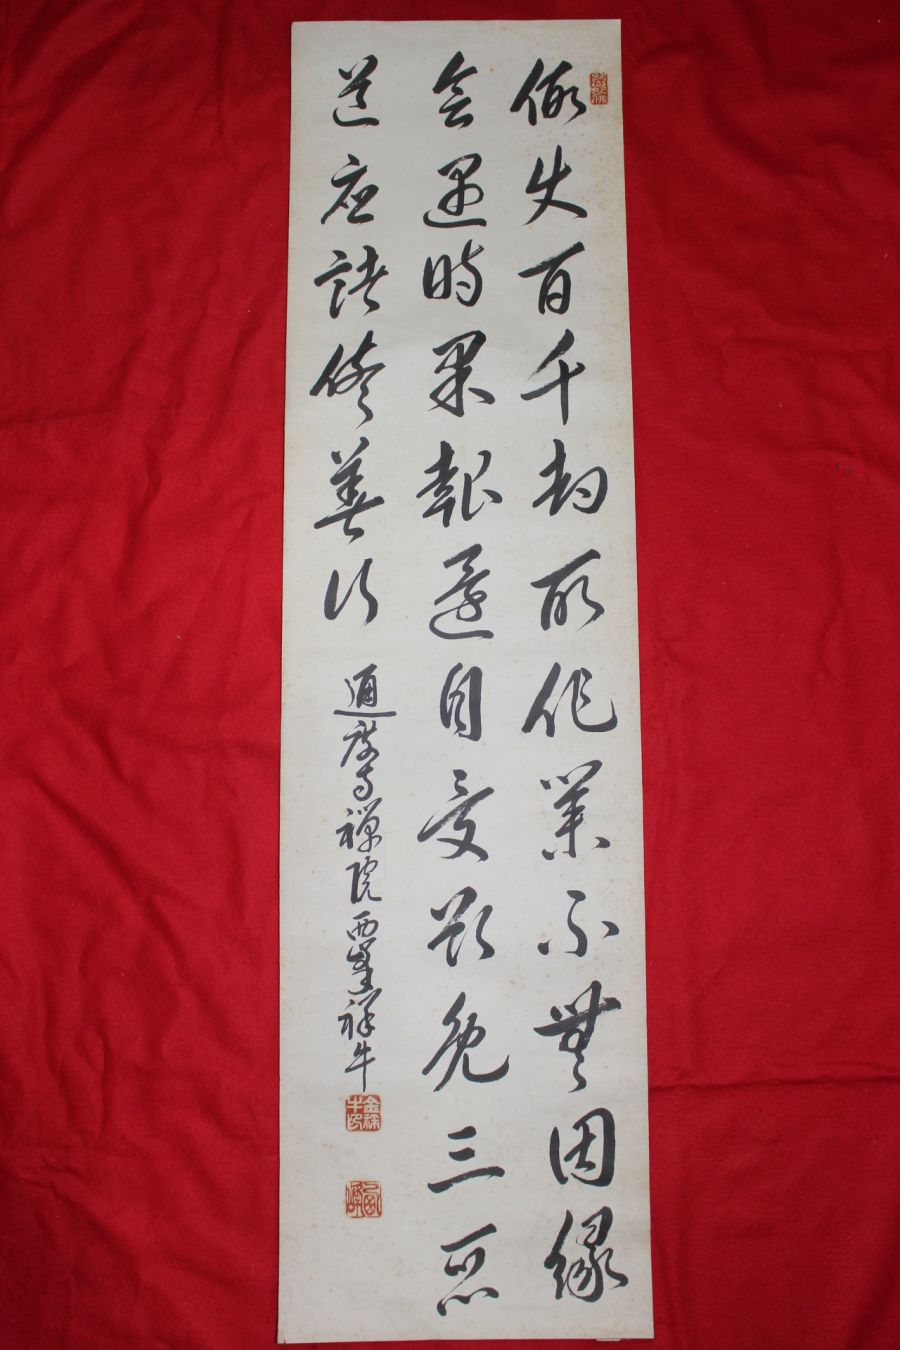 假使百千劫所作業不無因緣
會遇時果報還自受欲免三惡
道應諸修善行
通度寺禪院西峯祥牛
金祥牛印